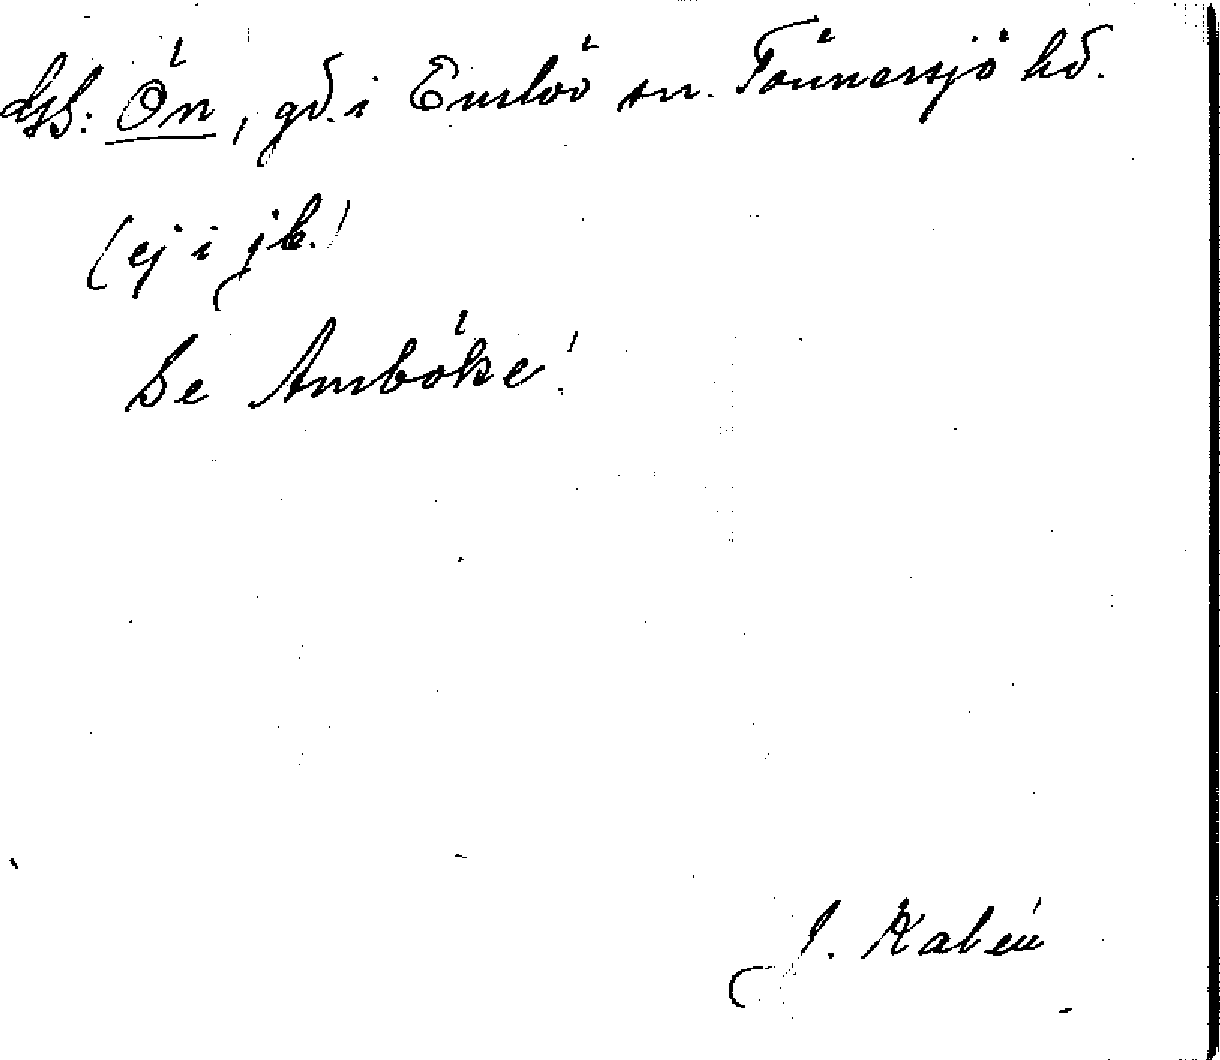 Ön, gd. i Enslöv sn. Tönnersjö hd.
(ej i jb.)
Se Amböke!
J. Kalén